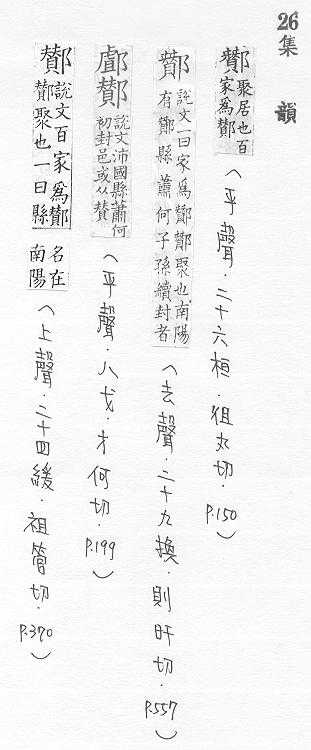 26 集韻
酇 聚居也百家為酇（平聲．二十六桓．徂丸切．P.150）
酇 說文一曰家為酇酇聚也南陽有酇縣蕭何子孫續封者（去聲．二十九換．則旰切．P.557）
𨞐酇 說文沛國縣蕭何初封邑或从贊（平聲．八戈．才何切．P.199）
酇 說文百家為酇酇聚也一曰縣名在南陽（上聲．二十四緩．祖管切．P.370）